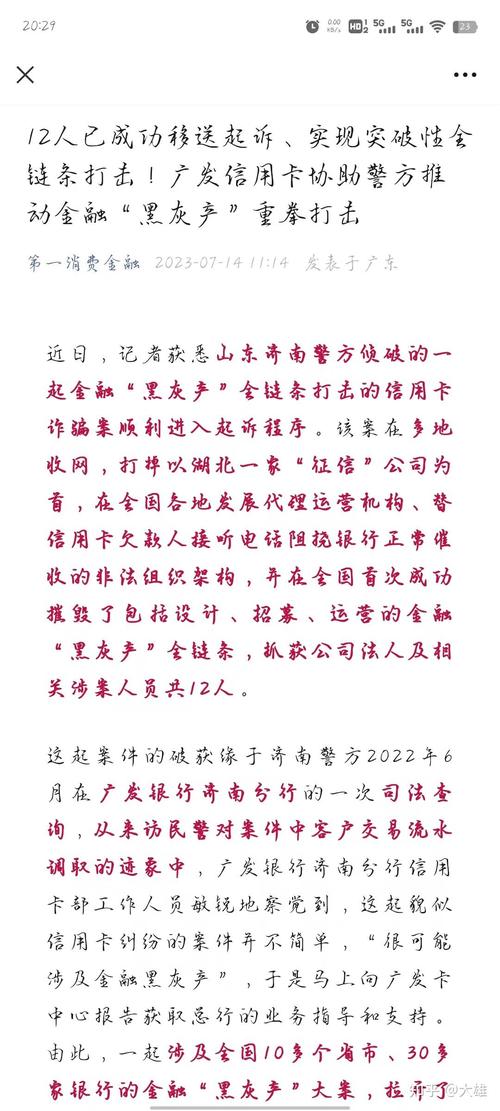 20:29
0.00
KB/s
HD 1 2
5G
5G
23
12人已成功移送起诉、实现突破性全
链条打击！广发信用卡协助警方推
动金融“黑灰产”重拳打击
第一消费金融 2023-07-14 11:14 发表于广东
近日，记者获悉山东济南警方侦破的一
起金融“黑灰产”全链条打击的信用卡
诈骗案顺利进入起诉程序。该案在多地
收网，打掉以湖北一家“征信”公司为
首，在全国各地发展代理运营机构、替
信用卡欠款人接听电话阻挠银行正常催
收的非法组织架构，并在全国首次成功
摧毁了包括设计、招募、运营的金融
“黑灰产”全链条，抓获公司法人及相
关涉案人员共12人。
这起案件的破获缘于济南警方2022年6
月在广发银行济南分行的一次司法查
询，从来访民警对案件中客户交易流水
调取的迹象中，广发银行济南分行信用
卡部工作人员敏锐地察觉到，这起貌似
信用卡纠纷的案件并不简单，“很可能
涉及金融黑灰产”，于是马上向广发卡
中心报告获取总行的业务指导和支持。
由此，一起涉及全国10多个省市、30多
家银行的金融“黑灰产”大案，拉开了
知乎 @大雄